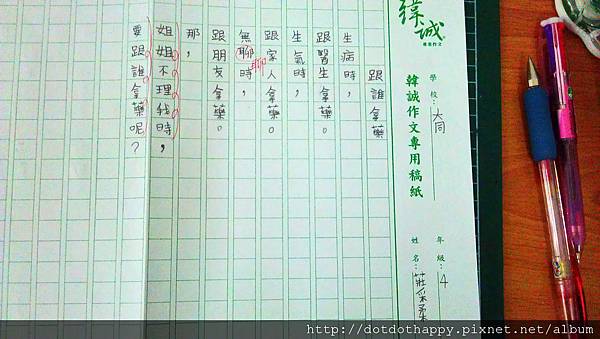 跟誰拿藥
生病時，
跟醫生拿藥。
生氣時，
跟家人拿藥。
無聊時，
聊
跟朋友拿藥。
那，
姐姐不理我時，
要跟誰拿藥呢？
緯誠
韓誠作文專用稿紙
學校：大同
年級：4
姓名：莊
http://dotdothappy.pixnet.net/album